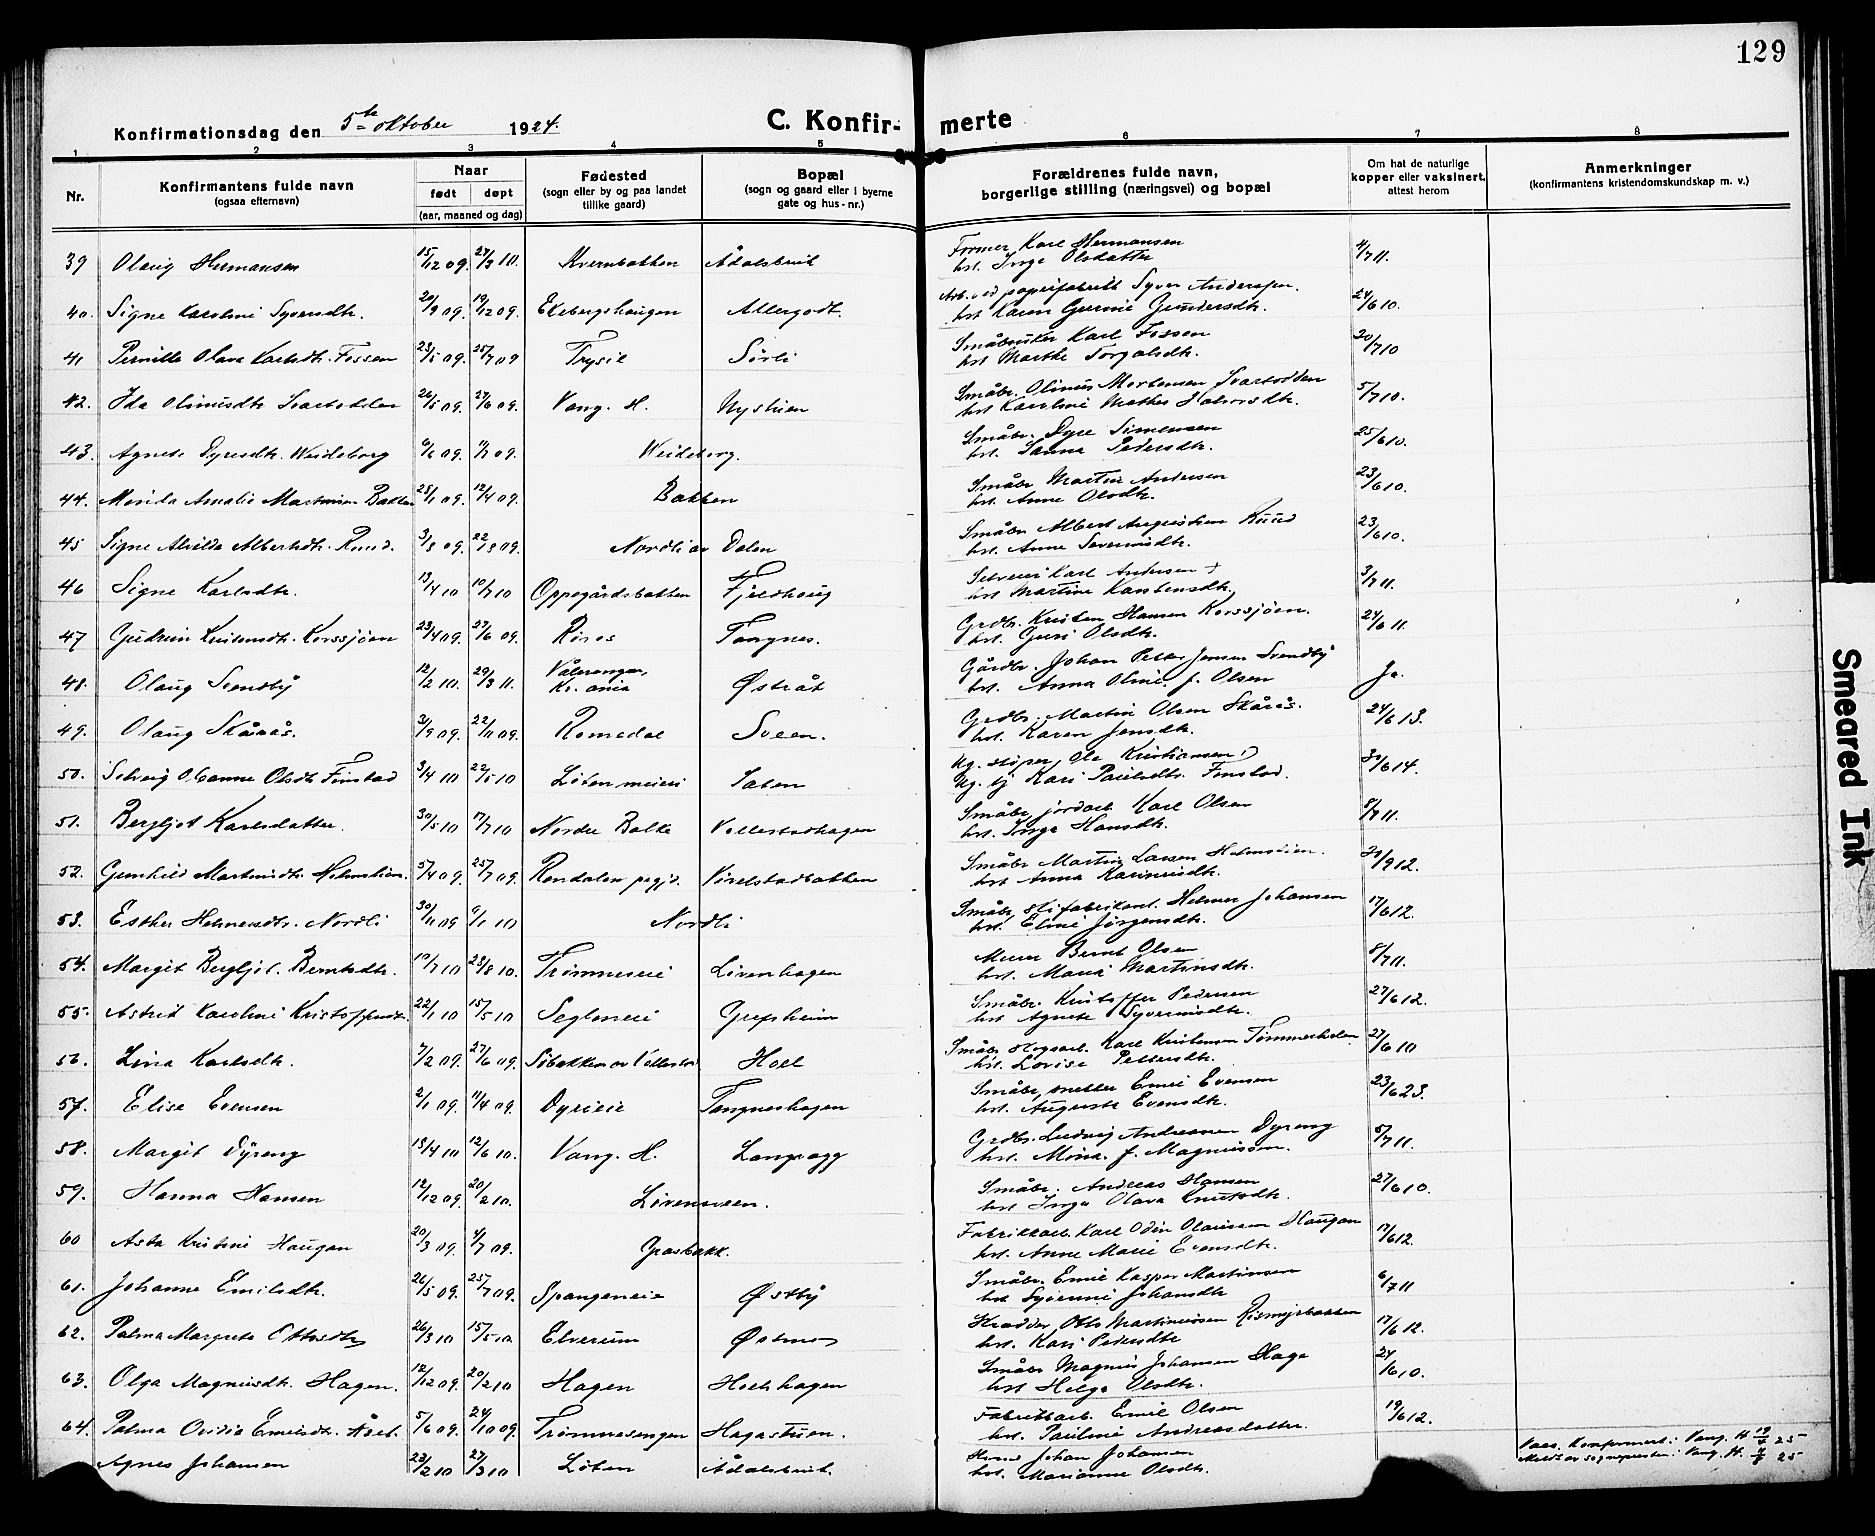 129
Konfirmationsdag den 5te oktober 1924.
C. Konfirmerte
1 2 3 4 5 6 7 8
Nr.
Konfirmantens fulde navn
(ogsaa efternavn)
Naar
født døpt
(aar, maaned og dag)
Fødested
(sogn eller by og paa landet
tillike gaard)
Bopæl
(sogn og gaard eller i byerne
gate og hus-nr.)
Forældrenes fulde navn,
borgerlige stilling (næringsvei) og bopæl
Om hat de naturlige
kopper eller vaksinert,
attest herom
Anmerkninger
(konfirmantens kristendomskundskap m. v.)
39 Olaug Hermansen 15/12 09. 27/3 10. Kvernbakken Ådalsbruk Former Karl Hermansen 4/7 11.
hst. Inga Olsdatter
40. Signe Karoline Syversdtr. 20/9 09. 19/12 09. Ekebergshaugen Allergodt. Arb. ved papirfabrikk Syver Anderssen. 24/6 10.
hst Karen Gurine Gundersdtr.
41 Pernille Olava Karlsdtr. Fossen 23/5 09. 25/7 09 Trysil Sørli Småbruker Karl Fossen 20/7 10
hst Marthe Torgalsdtr.
42. Ida Olinusdtr Svartodden 26/5 09. 27/6 09. Vang. H. Nystuen Småbr. Olinus Mortensen Svartodden 5/7 10.
hst Karoline Mathea Halvorsdtr.
43. Agnete Dyresdtr. Weideborg 6/6 09. 11/7 09. Weideborg. Småbr. Dyre Simensen 25/6 10.
hst. Sanna Pedersdtr.
44. Merida Amalie Martinsen Bakken 28/1 09. 12/4 09. Bakken Småbr Martin Andersen 23/6 10.
hst. Anne Olsdtr.
45 Signe Alvilda Albertsdtr. Ruud. 3/3 09. 22/3 09. Nordli av Dalen Småbr Albert Augustinen Ruud 23/6 10.
hst. Anne Severinsdtr.
46 Signe Karlsdtr. 13/4 10 10/7 10 Oppegårdsbakken Fjeldhaug Karl Andersen + 3/7 11.
hst Martine Karstensdtr.
47 Gudrun Kristensdtr. Korssjøen 23/4 09. 27/6 09. Røros Tangnes. Grdbr. Kristen Hansen Korssjøen. 24/6 11.
hst. Guri Olsdtr.
48. Olaug Svendby 12/2 10. 29/3 11. Vålerengen, Østråt Gårdbr. Johan Petter Jensen Svendby Ja.
Kr.ania hst. Anna Oline f. Olsen
49. Olaug Skåraås. 3/9 09. 22/11 09. Romedal Sveen. Grdbr. Martin Olsen Skårås. 24/6 13.
hst. Karen Jensdtr.
50. Solveig Johanne Olsdtr Finstad 3/4 10 22/5 10 Løten meieri Saten Ug. støper Ole Kristiansen 30/6 14.
Ug. tj Kari Paulsdtr. Finstad.
51. Bergljot Karlsdatter. 30/5 10 17/7 10 Nordre Balke Vollestadhagen Småbr, jordarb Karl Olsen 8/7 11.
hst. Inga Hansdtr.
52. Gunhild Martinsdtr. Holmstien. 5/4 09. 25/7 09. Rendalen prgjd. Vårelstadbakken Småbr Martin Larsen Holmstien. 30/9 12.
hst Anna Karinusdtr.
53. Esther Helmersdtr. Nordli 30/11 09 6/1 10 Nordli Småbr, skifabrikant. Helmer Johansen 17/6 12.
hst. Eline Jørgensdtr.
54. Margit Bergljot. Berntsdtr. 10/7 10 28/8 10. Trømneseie Livenhagen Murer Bernt Olsen 8/7 11.
hst. Marie Martinsdtr.
55. Astrid Karoline Kristoffersdtr. 22/1 10 15/5 10 Sægleneie Grefsheim Småbr. Kristoffer Pedersen 27/6 12.
hst Agnete Syverinsdtr.
56. Lina Karlsdtr. 7/2 09. 27/6 09. Søbakken av Vollestad Hoel Småbr skogsarb. Karl Kristensen Tømmerholen 27/6 10
hst. Lovise Pettersdtr.
57. Elise Evensen 2/1 09. 11/4 09. Dyrieie Tangneshagen Småbr, snekker Emil Evensen 23/6 23.
hst. Auguste Evensdtr.
58. Margit Dyreng 13/4 10 12/6 10. Vang. H. Langragg Grdbr. Ludvig Andreassen Dyreng 5/7 11.
hst. Mina. f. Magnussen.
59. Hanna Hansen 12/12 09. 20/2 10. Livensveen. Småbr. Andreas Hansen 27/6 10.
hst Inga Olava Knutsdtr.
60 Asta Kristine Haugan 20/3 09. 4/7 09. Grasbakk. Fabrikkarb. Karl Odin Olaussen Haugan 17/6 12.
hst. Anne Marie Evensdtr.
61. Johanne Emilsdtr. 26/5 09. 25/7 09. Spangeneie Østby Småbr. Emil Kasper Martinsen 6/7 11
hst Syverine Johansdtr
62. Palma Margrete Ottosdtr 26/3 10 15/5 10 Elverum Østmo Skrædder Otto Martiniusen Kismøbakken 17/6 12.
hst. Kari Pedersdtr
63. Olga Magnusdtr. Hagen. 12/12 09. 20/2 10 Hagen Hoelshagen Småbr Magnus Johansen Hage 24/6 10.
hst Helga Olsdtr.
64. Palma Ovidia Emilsdtr. Åset. 5/6 09. 24/10 09. Trømnesengen Hagastuen. Fabrikkarb. Emil Olsen 19/6 12.
hst. Pauline Andreasdatter.
Agnes Johansen 23/2 10 27/3 10 Løten Ådalsbruk. Johan Johansen
hst. Marianne Olsdtr.
Vaes. Konfirmert: Vang. H 19/4 25
Meldt av sognepresten: Vang. H. 25
Smeared Ink